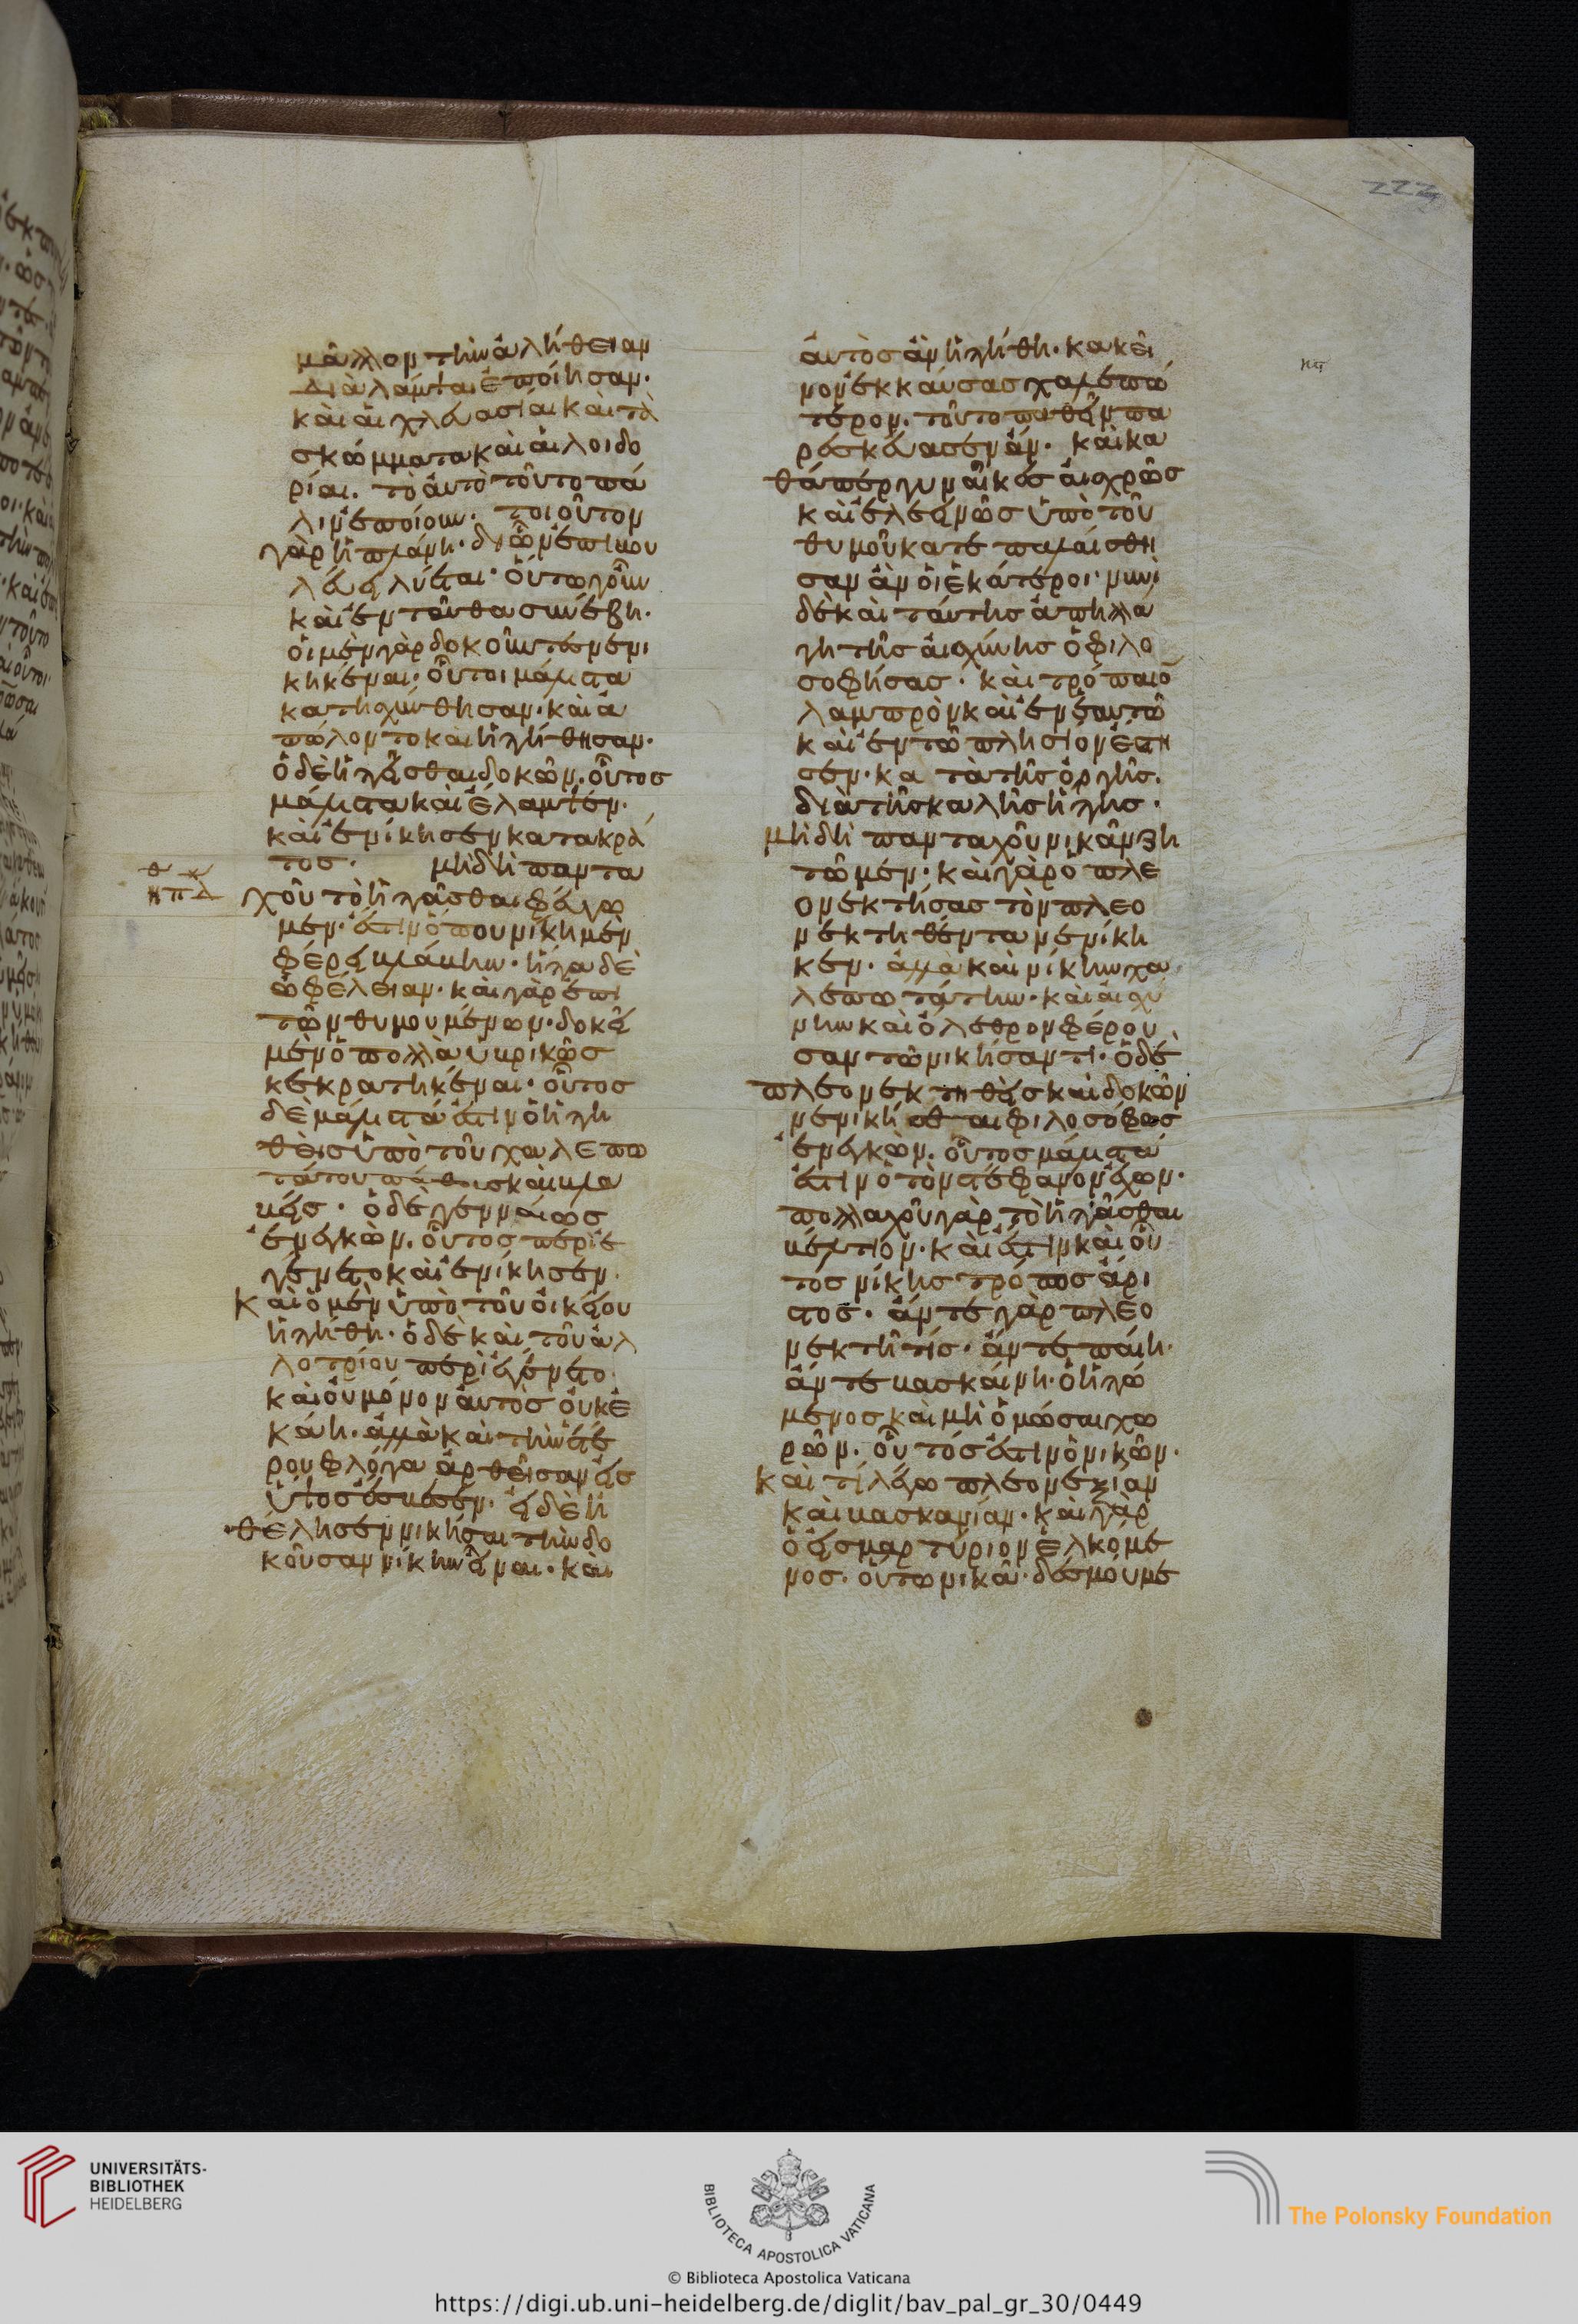 223
μᾶλλον τὴν ἀλήθειαν
διαλάμψαι ἐποίησαν·
καὶ αἱ χλευασίαι καὶ τὰ
σκώμματα καὶ αἱ λοιδο
ρίαι. τὸ αὐτὸ τοῦτο πά
λιν ἐποίουν· τοιοῦτον
γὰρ ἡ πλάνη· δι' ὧν ἐπιβου
λεύει λύεται· οὕτω γοῦν
καὶ ἐνταῦθα συνέβη·
οἱ μὲν γὰρ δοκοῦντες νενι
κηκέναι· οὗτοι μάλιστα
κατησχύνθησαν· καὶ ἀ
πώλοντο καὶ ἡττήθησαν·
ὁ δὲ ἡττᾶσθαι δοκῶν· οὗτος
μάλιστα καὶ ἔλαμψεν·
καὶ ἐνίκησεν κατακρά
τος· μὴ δὴ παντα
χοῦ τὸ ἡττᾶσθαι φεύγω
μεν· ἔστιν ὅπου νίκη μὲν
φέρει βλάβην· ἧττα δὲ
ὠφέλειαν· καὶ γὰρ ἐπὶ
τῶν θυμουμένων· δοκεῖ
μὲν ὁ πολλὰ ὑβρικὼς
κεκρατηκέναι· οὗτος
δὲ μάλιστά ἐστιν ὁ ἡττη
θεὶς ὑπὸ τοῦ χαλεπω
τάτου πάθους καὶ βλα
βείς· ὁ δὲ γενναίως
ἐνεγκὼν· οὗτος περιε
γένετο καὶ ἐνίκησεν·
Καὶ ὁ μὲν ὑπὸ τοῦ οἰκείου
ἡττήθη· ὁ δὲ καὶ τοῦ ἀλ
λοτρίου περιεγένετο·
καὶ οὐ μόνον αὐτὸς οὐκ ἐ
κάη· ἀλλὰ καὶ τὴν ἑτέ
ρου φλόγα ἀρθεῖσαν εἰς
ὕψος ἔσβεσεν· εἰ δὲ ἠ
θέλησεν νικῆσαι τὴν δο
κοῦσαν νίκην εἶναι· καὶ
αὐτὸς ἂν ἡττήθη· κακεῖ
νον ἐκκαύσας χαλεπώ
τερον· τοῦτο παθεῖν πα
ρεσκεύασεν ἄν· καὶ κα
θάπερ γυναῖκες αἰσχρῶς
καὶ ἐλεεινῶς ὑπὸ τοῦ
θυμοῦ κατεπαλαίσθη
σαν ἂν οἱ ἑκάτεροι· νυνὶ
δὲ καὶ ταύτης ἀπηλλά
γη τῆς αἰσχύνης ὁ φιλο
σοφήσας· καὶ τρόπαιον
λαμπρὸν καὶ ἐν ἑαυτῷ
καὶ ἐν τῷ πλησίον ἔστη
σεν· κατὰ τῆς ὀργῆς·
διὰ τῆς καλῆς ἥττης·
μὴ δὴ πανταχοῦ νικᾶν ζη
τῶμεν· καὶ γὰρ ὁ πλε
ονεκτήσας τὸν πλεο
νεκτηθέντα νενίκη
κεν· ἀλλὰ καὶ νίκην χα
λεπωτάτην· καὶ αἰσχύ
νην καὶ ὄλεθρον φέρου
σαν τῷ νικήσαντι· ὁ δὲ
πλεονεκτηθεὶς καὶ δοκῶν
νενικῆσθαι φιλοσόφως
ἐνεγκὼν· οὗτος μάλιστά
ἐστιν ὁ τὸν στέφανον ἔχων·
πολλαχοῦ γὰρ τὸ ἡττᾶσθαι
βέλτιον· καὶ ἔστιν καὶ οὗ
τος νίκης τρόπος ἄρι
στος· ἄν τε γὰρ πλεο
νεκτῆ τίς· ἄν τε παίη·
ἄν τε βασκαίνη· ὁ ἡττώ
μενος καὶ μὴ ὁμόσαι χω
ρῶν· οὗτός ἐστιν ὁ νικῶν·
Καὶ τί λέγω πλεονεξίαν
καὶ βασκανίαν· καὶ γὰρ
ὁ εἰς μαρτύριον ἑλκόμε
νος· οὕτω νικᾶ· δεσμούμε
UNIVERSITÄTS-
BIBLIOTHEK
HEIDELBERG
BIBLIOTECA APOSTOLICA VATICANA
The Polonsky Foundation
© Biblioteca Apostolica Vaticana
https://digi.ub.uni-heidelberg.de/diglit/bav_pal_gr_30/0449